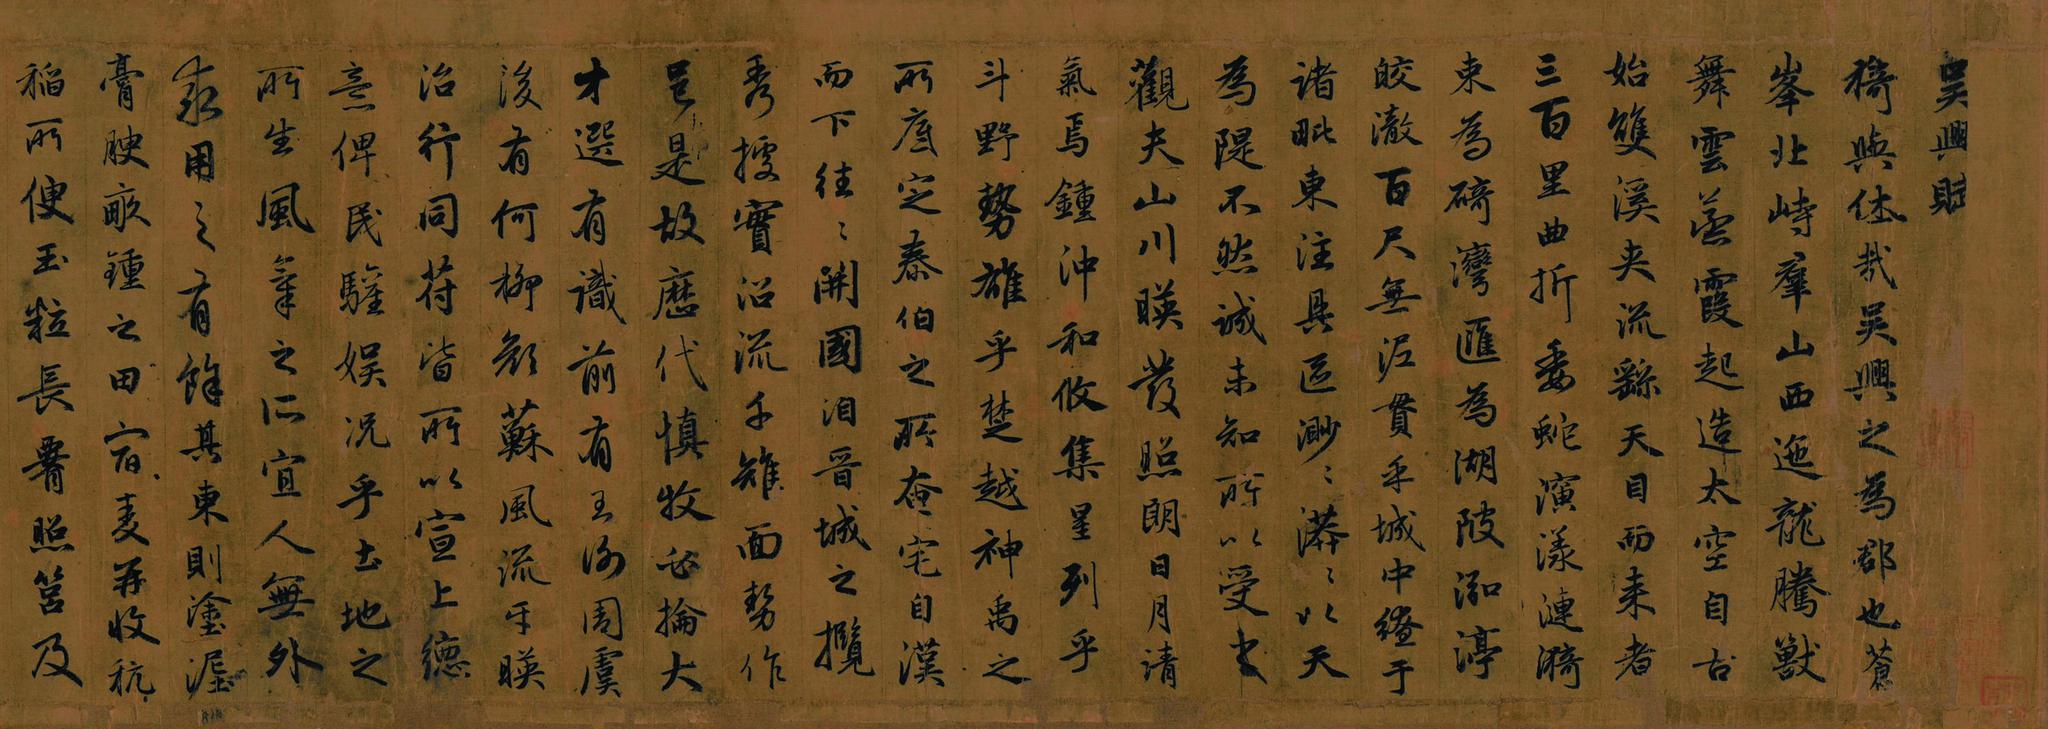 吳興賦
猗與休哉吳興之為郡也蒼
峯北峙羣山西迤龍騰獸
舞雲蒸霞起造太空自古
始雙溪夾流繇天目而来者
三百里曲折委蛇演漾漣漪
束為碕灣匯為湖陂泓渟
皎澈百尺無泥貫乎城中繚于
諸毗東注具區渺〻漭〻以天
為隄不然誠未知所以受之
觀夫山川暎發照朗日月清
氣焉鍾沖和攸集星列乎
斗野勢雄乎楚越神禹之
所底定泰伯之所奄宅自漢
而下往〻開國洎晋城之攬
秀擷實沿流千雉面勢作
邑是故歷代慎牧必掄大
才選有識前有王謝周虞
後有何柳顏蘇風流乎暎
治行同符皆所以宣上德
意俾民驩娱况乎土地之
所生風氣之所宜人無外
求用之有餘其東則塗泥
膏腴畝鍾之田宿麦再收秔
稻所便玉粒長賮照筥及